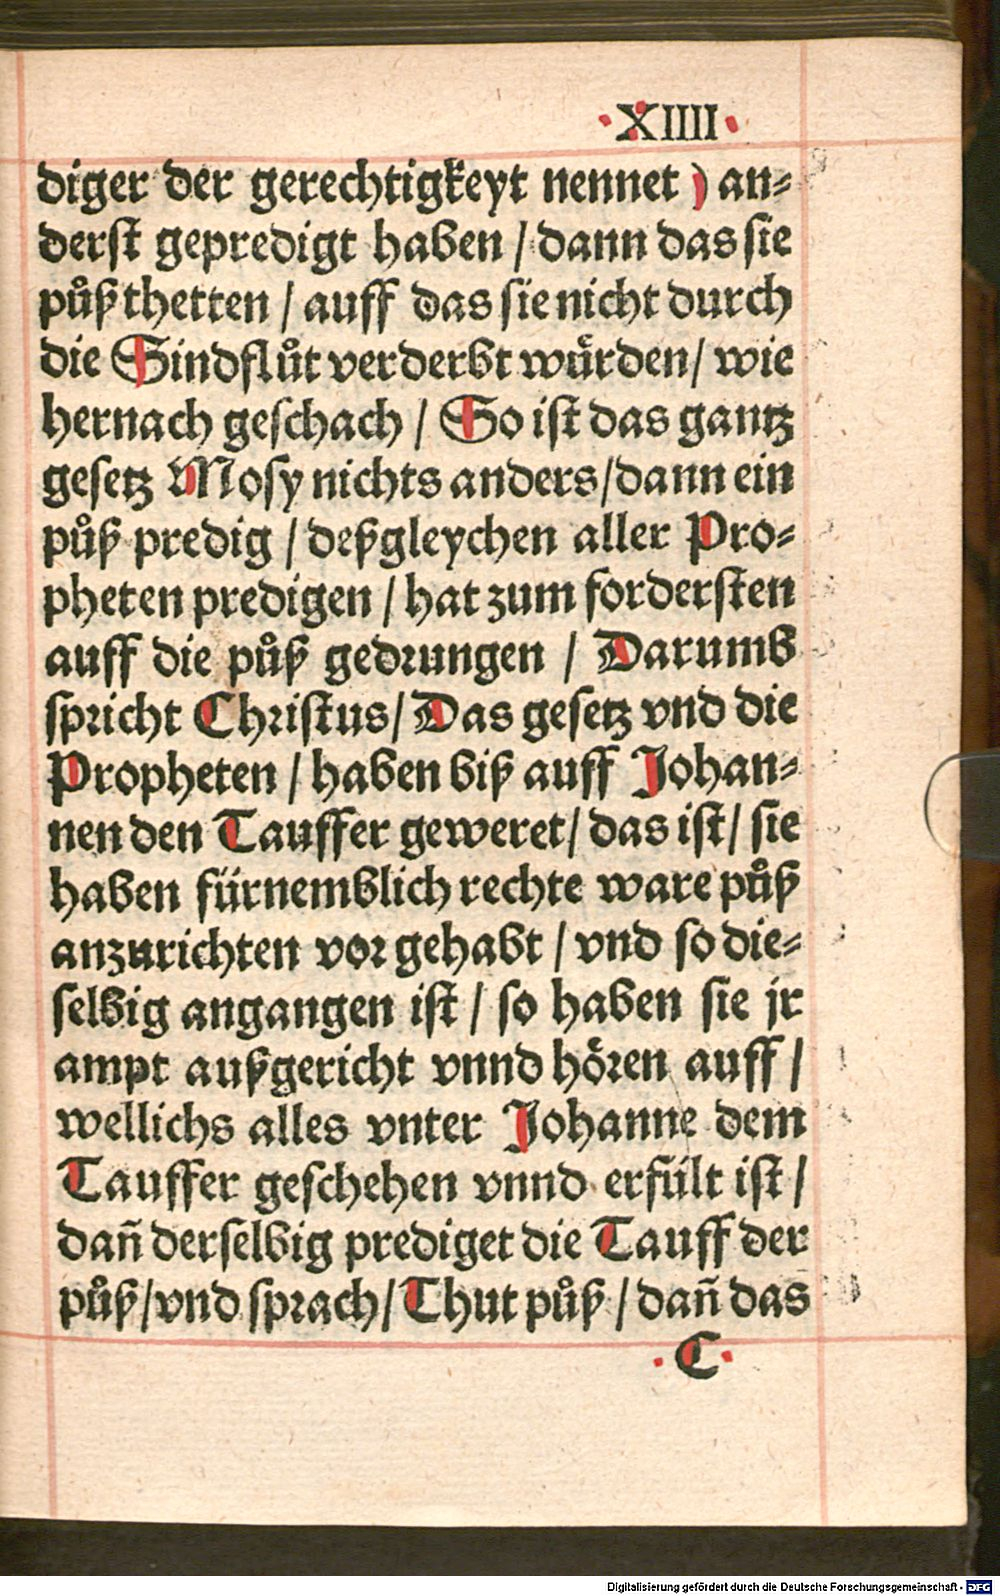 ·XIIII·
diger der gerechtigkeyt nennet ) an⸗
derst gepredigt haben / dann das sie
půß thetten / auff das sie nicht durch
die Sindflůt verderbt wůrden / wie
hernach geschach / So ist das gantz
gesetz Mosy nichts anders / dann ein
půß predig / deßgleychen aller Pro⸗
pheten predigen / hat zum fordersten
auff die půß gedrungen / Darumb
spricht Christus / Das gesetz vnd die
Propheten / haben biß auff Johan⸗
nen den Tauffer geweret / das ist / sie
haben fürnemblich rechte ware půß
anzurichten vor gehabt / vnd so die⸗
selbig angangen ist / so haben sie jr
ampt außgericht vnnd hören auff /
wellichs alles vnter Johanne dem
Tauffer geschehen vnnd erfült ist /
dañ derselbig prediget die Tauff der
půß / vnd sprach / Thut půß / dañ das
·C·
Digitalisierung gefördert durch die Deutsche Forschungsgemeinschaft - DFG